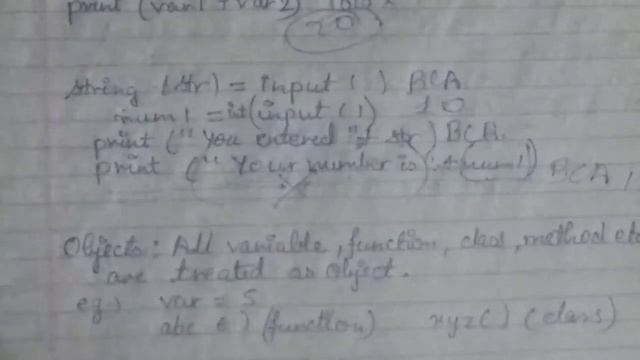 print (var1 + var2)
20
string (str) = input ( ) BCA
num1 = it(input ( )) 10
print (" You entered "+ str) BCA.
print (" Your number is": + num1) BCA,
Objects: All variable, function, class, method etc
are treated as object.
eg:→ var = 5
abc ( ) (function) xyz( ) (class)